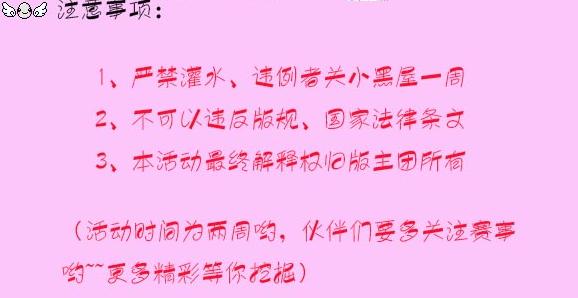 注意事项：
1、严禁灌水、违例者关小黑屋一周
2、不可以违反版规、国家法律条文
3、本活动最终解释权归版主团所有
（活动时间为两周哟，伙伴们要多关注赛事
哟~~更多精彩等你挖掘）